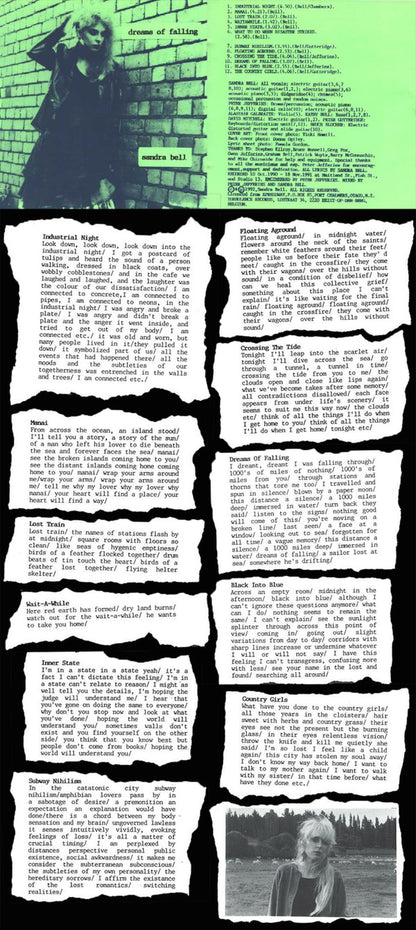 dreams of falling
sandra bell
1. INDUSTRIAL NIGHT (4.50).(Bell/Chambers).
2. MANAI.(4.21).(Bell).
3. LOST TRAIN.(2.07).(Bell).
4. WAITAWHILE.(1.42).(Bell).
5. INNER STATE.(3.02).(Bell).
6. WHAT TO DO WHEN DISASTER STRIKES.
(3.58).(Bell).
7. SUBWAY NIHILISM.(3.55).(Bell/Gutteridge).
8. FLOATING AGROUND.(2.53).(Bell).
9. CROSSING THE TIDE.(4.04).(Bell/Jefferies).
10. DREAMS OF FALLING.(3.07).(Bell).
11. BLACK INTO BLUE.(2.55).(Bell/Jefferies).
12. THE COUNTRY GIRLS.(4.50).(Bell/Gutteridge).
SANDRA BELL: All vocals;
PETER JEFFERIES: Drums/percussion;
Industrial Night
Look down, look down, look down into the
industrial night/ I got a postcard of
tulips and heard the sound of a person
walking, dressed in black coats, over
wobbly cobblestones/ and in the cafe we
laughed and laughed, and the laughter was
the colour of our dissatisfaction/ I am
connected to concrete,I am connected to
pipes, I am connected to neons, in the
industrial night/ I was angry and broke a
plate/ I was angry and didn't break a
plate and the anger it went inside, and
tried to get out of my body/ I am
connected etc./ it was old and worn, but
many people lived in it/they pulled it
down/ it symbolized part of us/ all the
events that had happened there/ all the
moods and the subtleties of our
togetherness was entrenched in the walls
and trees/ I am connected etc./
Manai
From across the ocean, an island stood/
I'll tell you a story, a story of the sun/
of a man who left his lover to die beneath
the sea and forever faces the sea/ manai/
see the broken islands coming home to you/
see the distant islands coming home coming
home to you/ manai/ wrap your arms around
me/wrap your arms/ wrap your arms around
me/ tell me why my lover why my lover why
manai/ your heart will find a place/ your
heart will find a way/
Lost Train
Lost train/ the names of stations flash by
at midnight/ square rooms with floors so
clean/ like seas of hygenic emptiness/
birds of a feather flocked together/ drum
beats of tin touch the heart/ birds of a
feather lost together/ flying helter
skelter/
Wait-A-While
Here red earth has formed/ dry land burns/
watch out for the wait-a-while/ he wants
to take you home/
Inner State
I'm in a state in a state yeah/ it's a
fact I can't dictate this feeling/ I'm in
a state can't relate to reason/ I might as
well tell you the details, I'm hoping the
judge will understand me/ I hear that
you've gone on doing the same to everyone/
why don't you stop now and look at what
you've done/ hoping the world will
understand you/ sometimes walls don't
exist and you find yourself on the other
side/ you think that you know best but
people don't come from books/ hoping the
world will understand you/
Subway Nihilism
In the catatonic city subway
nihilism/amphibian lovers pass by in
a sabotage of desire/ a premonition an
expectation an explanation would have
done/there is a chord between my body -
sensation and my brain/ ungoverned lawless
it senses intuitively vividly, evoking
feelings of loss/ it's all a matter of
crucial timing/ I am perplexed by
distances perspective personal public
existence, social awkwardness/ it makes me
consider the subterranean subconscious/
the subtleties of my own personality/ the
hereditary sorrows/ I affirm the existance
of the lost romantics/ switching
realities/
Floating Aground
Floating aground/ in midnight water/
flowers around the neck of the saints/
remember white feathers around their feet/
people like us before their fate they'd
meet/ caught in the crossfire/ they come
with their wagons/ over the hills without
sound/ in a condition of disbelief/ how
can we heal this collective grief/
something about this place I can't
explain/ it's like waiting for the final
rain/ floating aground/ floating aground/
caught in the crossfire/ they come with
their wagons/ over the hills without
sound/
Crossing The Tide
Tonight I'll leap into the scarlet air/
tonight I'll dive across the sea/ go
through a tunnel, a tunnel in time/
crossing the tide from you to me/ the
clouds open and close like lips again/
what we've become takes after some memory/
all contradictions disallowed/ each face
appears from under life's scenery/ it
seems to suit me this way now/ the clouds
etc/ think of all the things I'll do when
I get home to you/ think of all the things
I'll do when I get home/ tonight etc/
Dreams Of Falling
I dreamt, dreamt I was falling through/
1000's of miles of nothing/ 1000's of
miles from you/ through stations and
thorns that tore me too/ I travelled and
spun in silence/ blown by a gypsy moon/
this distance a silence/ a 1000 miles
deep/ immersed in water/ turn back they
said/ listen to the signs/ nothing good
will come of this/ you're moving on a
broken line/ last seen/ a face at a
window/ looking out to sea/ forgotten for
all time/ a vague memory/ this distance a
silence/ a 1000 miles deep/ immersed in
water/ dreams of falling/ a sailor lost at
sea/ somewhere he's drifting/
Black Into Blue
Across an empty room/ midnight in the
afternoon/ black into blue/ although I
can't ignore these questions anymore/ what
can I do/ nothing seems to remain the
same/ I can't explain/ see the sunlight
splinter through across this point of
view/ coming in/ going out/ slight
variations from day to day/ corridors with
sharp lines increase or undermine whatever
I will or will not say/ I have this
feeling I can't transgress, confusing more
with less/ see your name in the lost and
found/ searching all around/
Country Girls
What have you done to the country girls/
all those years in the cloisters/ hair
sweet with herbs and country grass/ their
eyes see not the present but the burning
glass/ in their eyes relentless vision/
throw the knife and kill me quietly she
said/ I'm so lost I feel like a child
again/ this city has stolen my soul away/
I don't know my way back home/ I want to
talk to my mother again/ I want to walk
with my sister/ in that time before/ what
have they done etc./